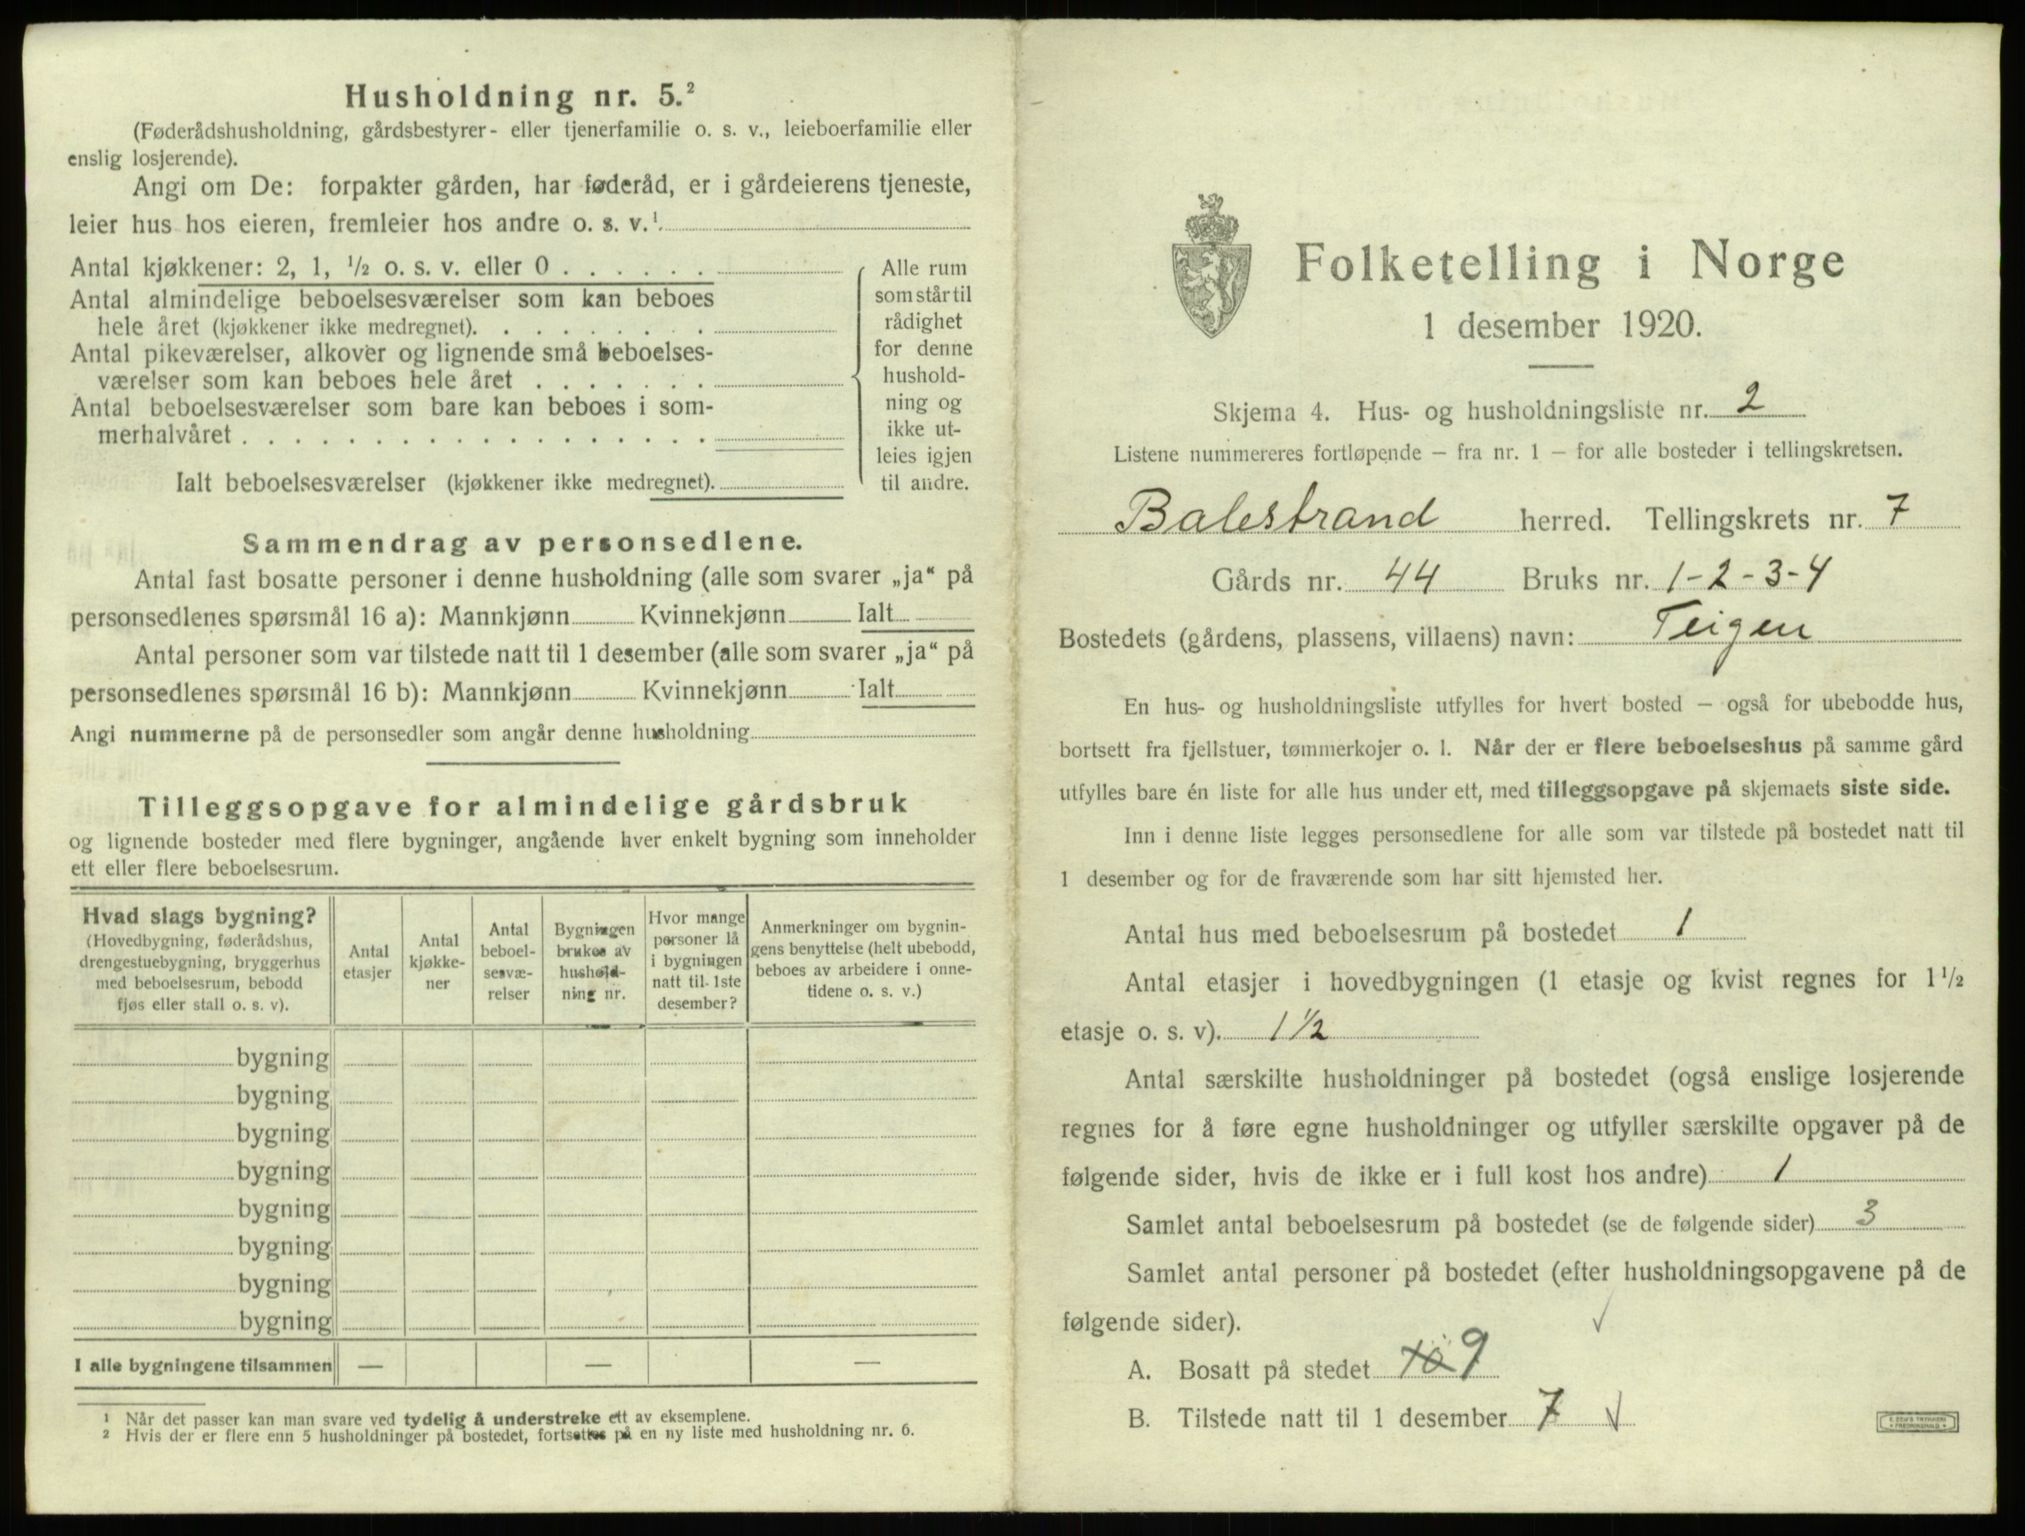 Husholdning nr. 5.²
(Føderådshusholdning, gårdsbestyrer- eller tjenerfamilie o. s. v., leieboerfamilie eller
enslig losjerende).
Angi om De: forpakter gården, har føderåd, er i gårdeierens tjeneste,
leier hus hos eieren, fremleier hos andre o. s. v.¹
Antal kjøkkener: 2, 1, ½ o. s. v. eller 0 . . . . . .
Antal almindelige beboelsesværelser som kan beboes
hele året (kjøkkener ikke medregnet). . . . . . . . .
Antal pikeværelser, alkover og lignende små beboelses-
værelser som kan beboes hele året . . . . . . .
Antal beboelsesværelser som bare kan beboes i som-
merhalvåret . . . . . . . . . . . . . . . . . .
Ialt beboelsesværelser (kjøkkener ikke medregnet).
Alle rum
som står til
rådighet
for denne
hushold-
ning og
ikke ut-
leies igjen
til andre.
Sammendrag av personsedlene.
Antal fast bosatte personer i denne husholdning (alle som svarer „ja“ på
personsedlenes spørsmål 16 a): Mannkjønn Kvinnekjønn Ialt
Antal personer som var tilstede natt til 1 desember (alle som svarer „ja“ på
personsedlenes spørsmål 16 b): Mannkjønn Kvinnekjønn Ialt
Angi nummerne på de personsedler som angår denne husholdning
Tilleggsopgave for almindelige gårdsbruk
og lignende bosteder med flere bygninger, angående hver enkelt bygning som inneholder
ett eller flere beboelsesrum.
Hvad slags bygning?
(Hovedbygning, føderådshus,
drengestuebygning, bryggerhus
med beboelsesrum, bebodd
fjøs eller stall o. s. v).
Antal
etasjer
Antal
kjøkke-
ner
Antal
beboel-
sesvæ-
relser
Bygningen
brukes av
hushold-
ning nr.
Hvor mange
personer lå
i bygningen
natt til 1ste
desember?
Anmerkninger om bygnin-
gens benyttelse (helt ubebodd,
beboes av arbeidere i onne-
tidene o. s. v.)
bygning
bygning
bygning
bygning
bygning
bygning
bygning
bygning
I alle bygningene tilsammen — — —
¹ Når det passer kan man svare ved tydelig å understreke ett av eksemplene.
² Hvis der er flere enn 5 husholdninger på bostedet, fortsettes på en ny liste med husholdning nr. 6.
Folketelling i Norge
1 desember 1920.
Skjema 4. Hus- og husholdningsliste nr. 2
Listene nummereres fortløpende – fra nr. 1 – for alle bosteder i tellingskretsen.
Balestrand herred. Tellingskrets nr. 7
Gårds nr. 44 Bruks nr. 1-2-3-4
Bostedets (gårdens, plassens, villaens) navn: Teigen
En hus- og husholdningsliste utfylles for hvert bosted – også for ubebodde hus,
bortsett fra fjellstuer, tømmerkojer o. l. Når der er flere beboelseshus på samme gård
utfylles bare én liste for alle hus under ett, med tilleggsopgave på skjemaets siste side.
Inn i denne liste legges personsedlene for alle som var tilstede på bostedet natt til
1 desember og for de fraværende som har sitt hjemsted her.
Antal hus med beboelsesrum på bostedet 1
Antal etasjer i hovedbygningen (1 etasje og kvist regnes for 1½
etasje o. s. v). 1½
Antal særskilte husholdninger på bostedet (også enslige losjerende
regnes for å føre egne husholdninger og utfyller særskilte opgaver på de
følgende sider, hvis de ikke er i full kost hos andre) 1
Samlet antal beboelsesrum på bostedet (se de følgende sider) 3
Samlet antal personer på bostedet (efter husholdningsopgavene på de
følgende sider).
A. Bosatt på stedet 10 9
B. Tilstede natt til 1 desember 7